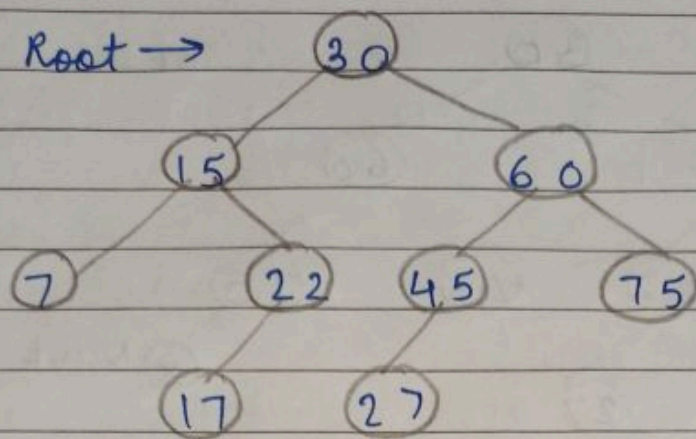 Root → 30
15 60
7 22 45 75
17 27